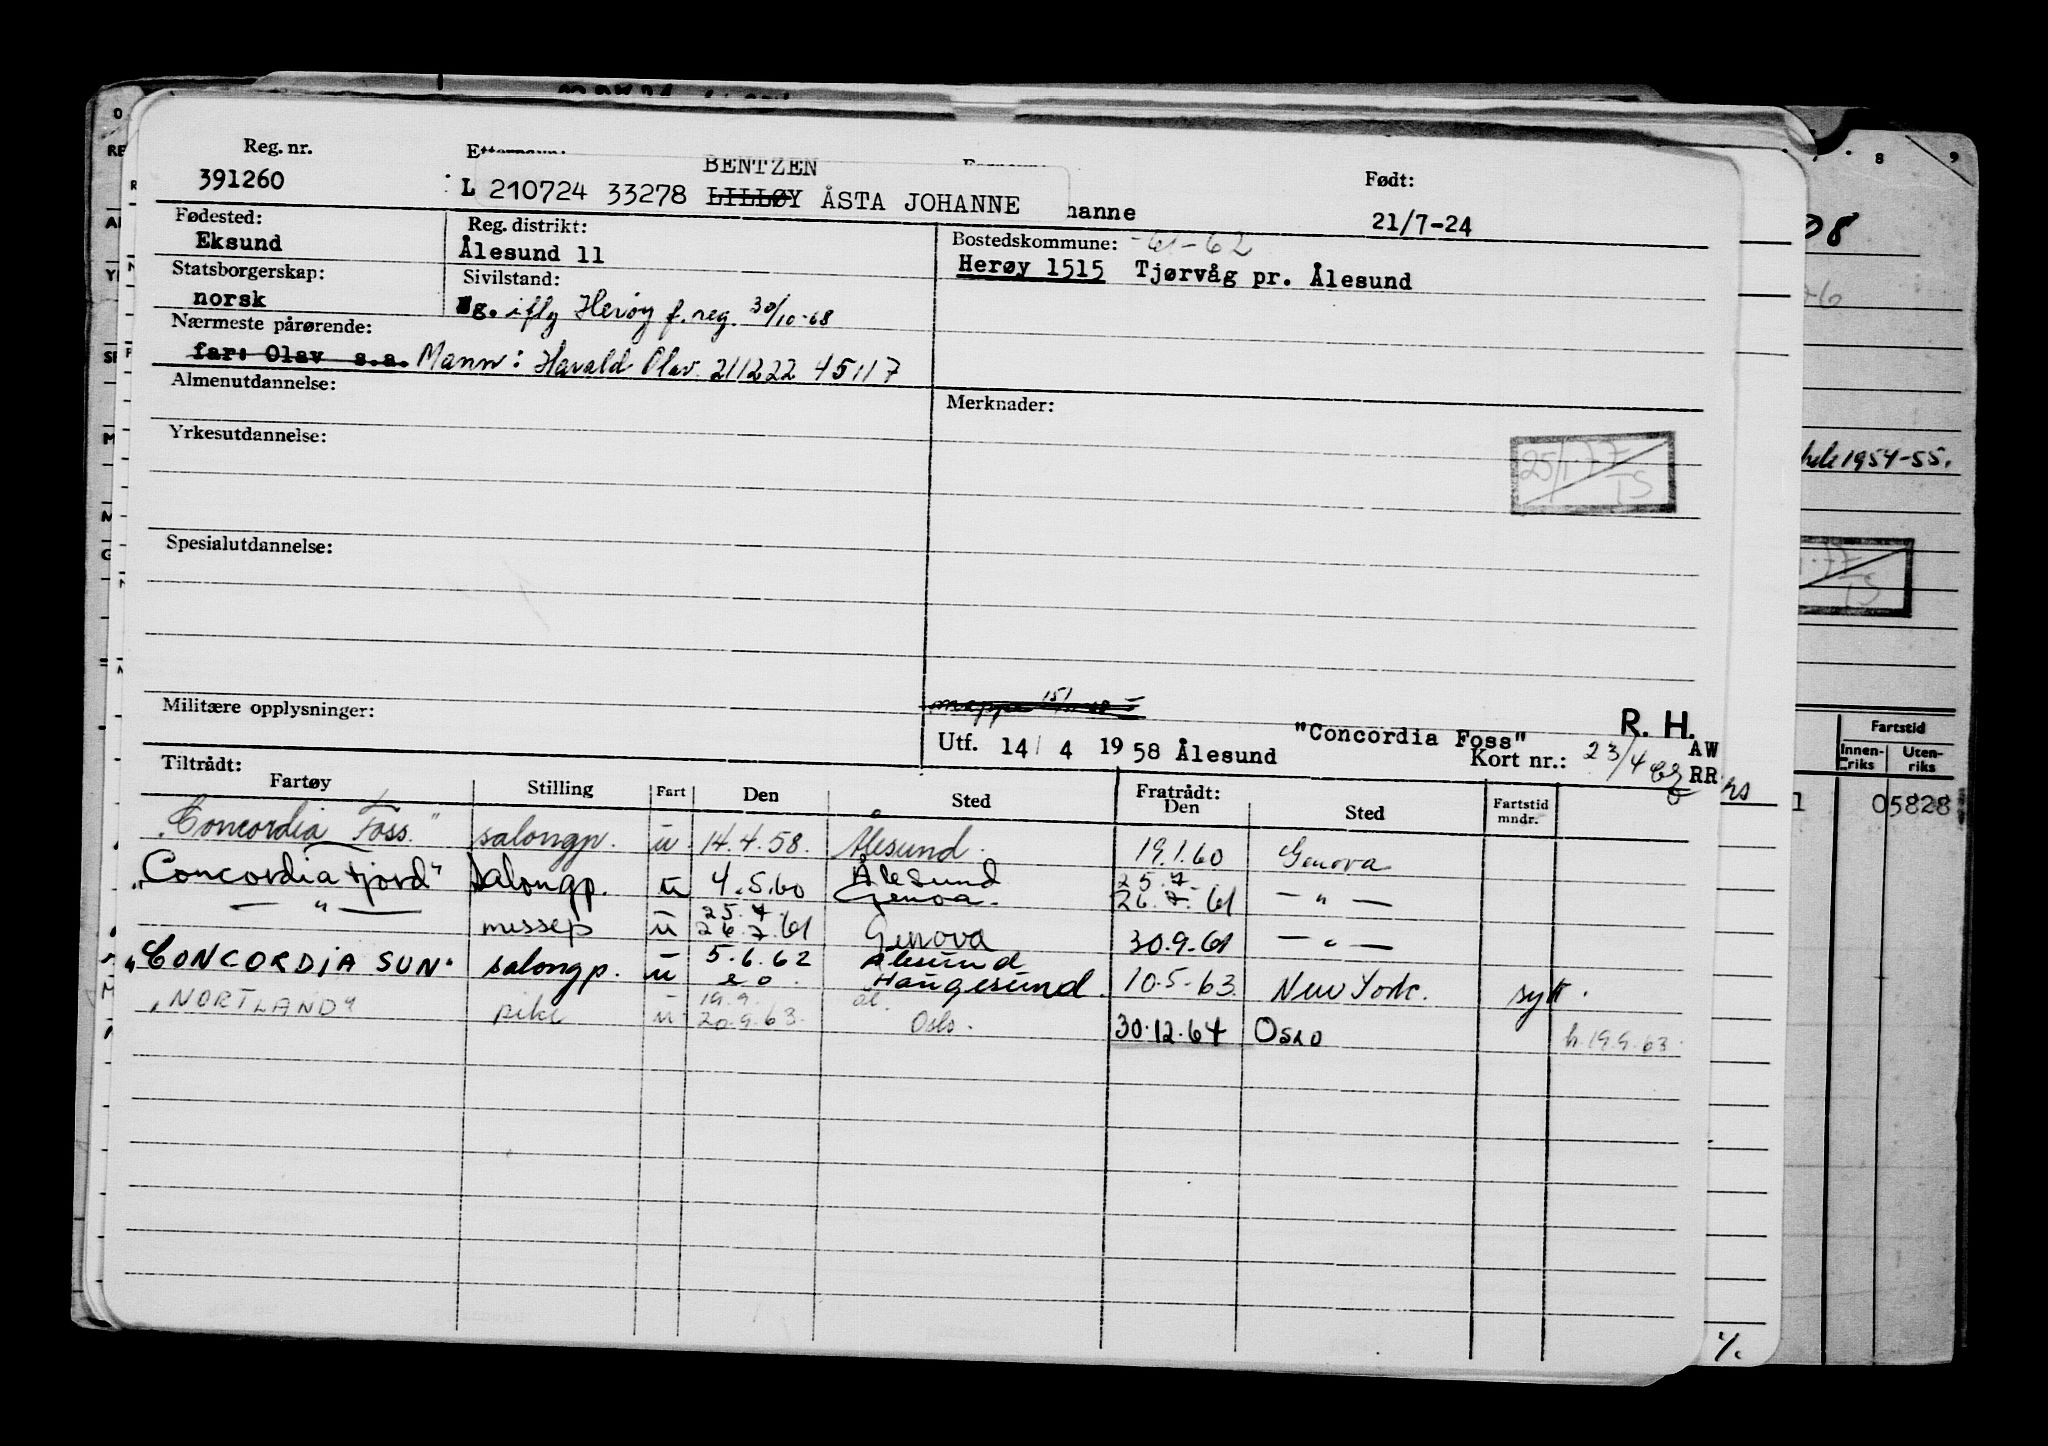 Reg. nr.
391260
BENTZEN
L 210724 33278 LILLØY ÅSTA JOHANNE
hanne
Født:
21/7-24
Fødested:
Eksund
Reg. distrikt:
Ålesund 11
Bostedskommune: -61-62
Herøy 1515 Tjørvåg pr. Ålesund
Statsborgerskap:
norsk
Sivilstand:
g. iflg Herøy f.reg. 30/10-68
Nærmeste pårørende:
far: Olav s.a. Mann: Harald Olav 211222 45117
Almenutdannelse:
Merknader:
Yrkesutdannelse:
25/1-77
IS
Spesialutdannelse:
Militære opplysninger:
mappe
Utf. 14/4 1958 Ålesund
"Concordia Foss"
R. H.
Kort nr.: 23/4
AW
RR
Tiltrådt:
Fartøy Stilling Fart Den Sted
Fratrådt:
Den Sted Fartstid mndr.
"Concordia Foss." salongp. u. 14.4.58. Ålesund. 19.1.60 Genova
"Concordia Fjord" Salongp. u 4.5.60 Ålesund Genoa. 25.7. 26.7.61 — " —
— " — messep u 25.7. 26.7.61 Genova 30.9.61 — " —
"CONCORDIA SUN" salongp. u 5.6.62 Ålesund Haugesund. 10.5-63. New York. syk.
"NORTLAND" pike u 19.9. 20.9.63. ål. Oslo. 30.12.64 Oslo h.19.9.63.
hele 1954-55.
Fartstid
Innenriks
Utenriks
1 05828
8 9